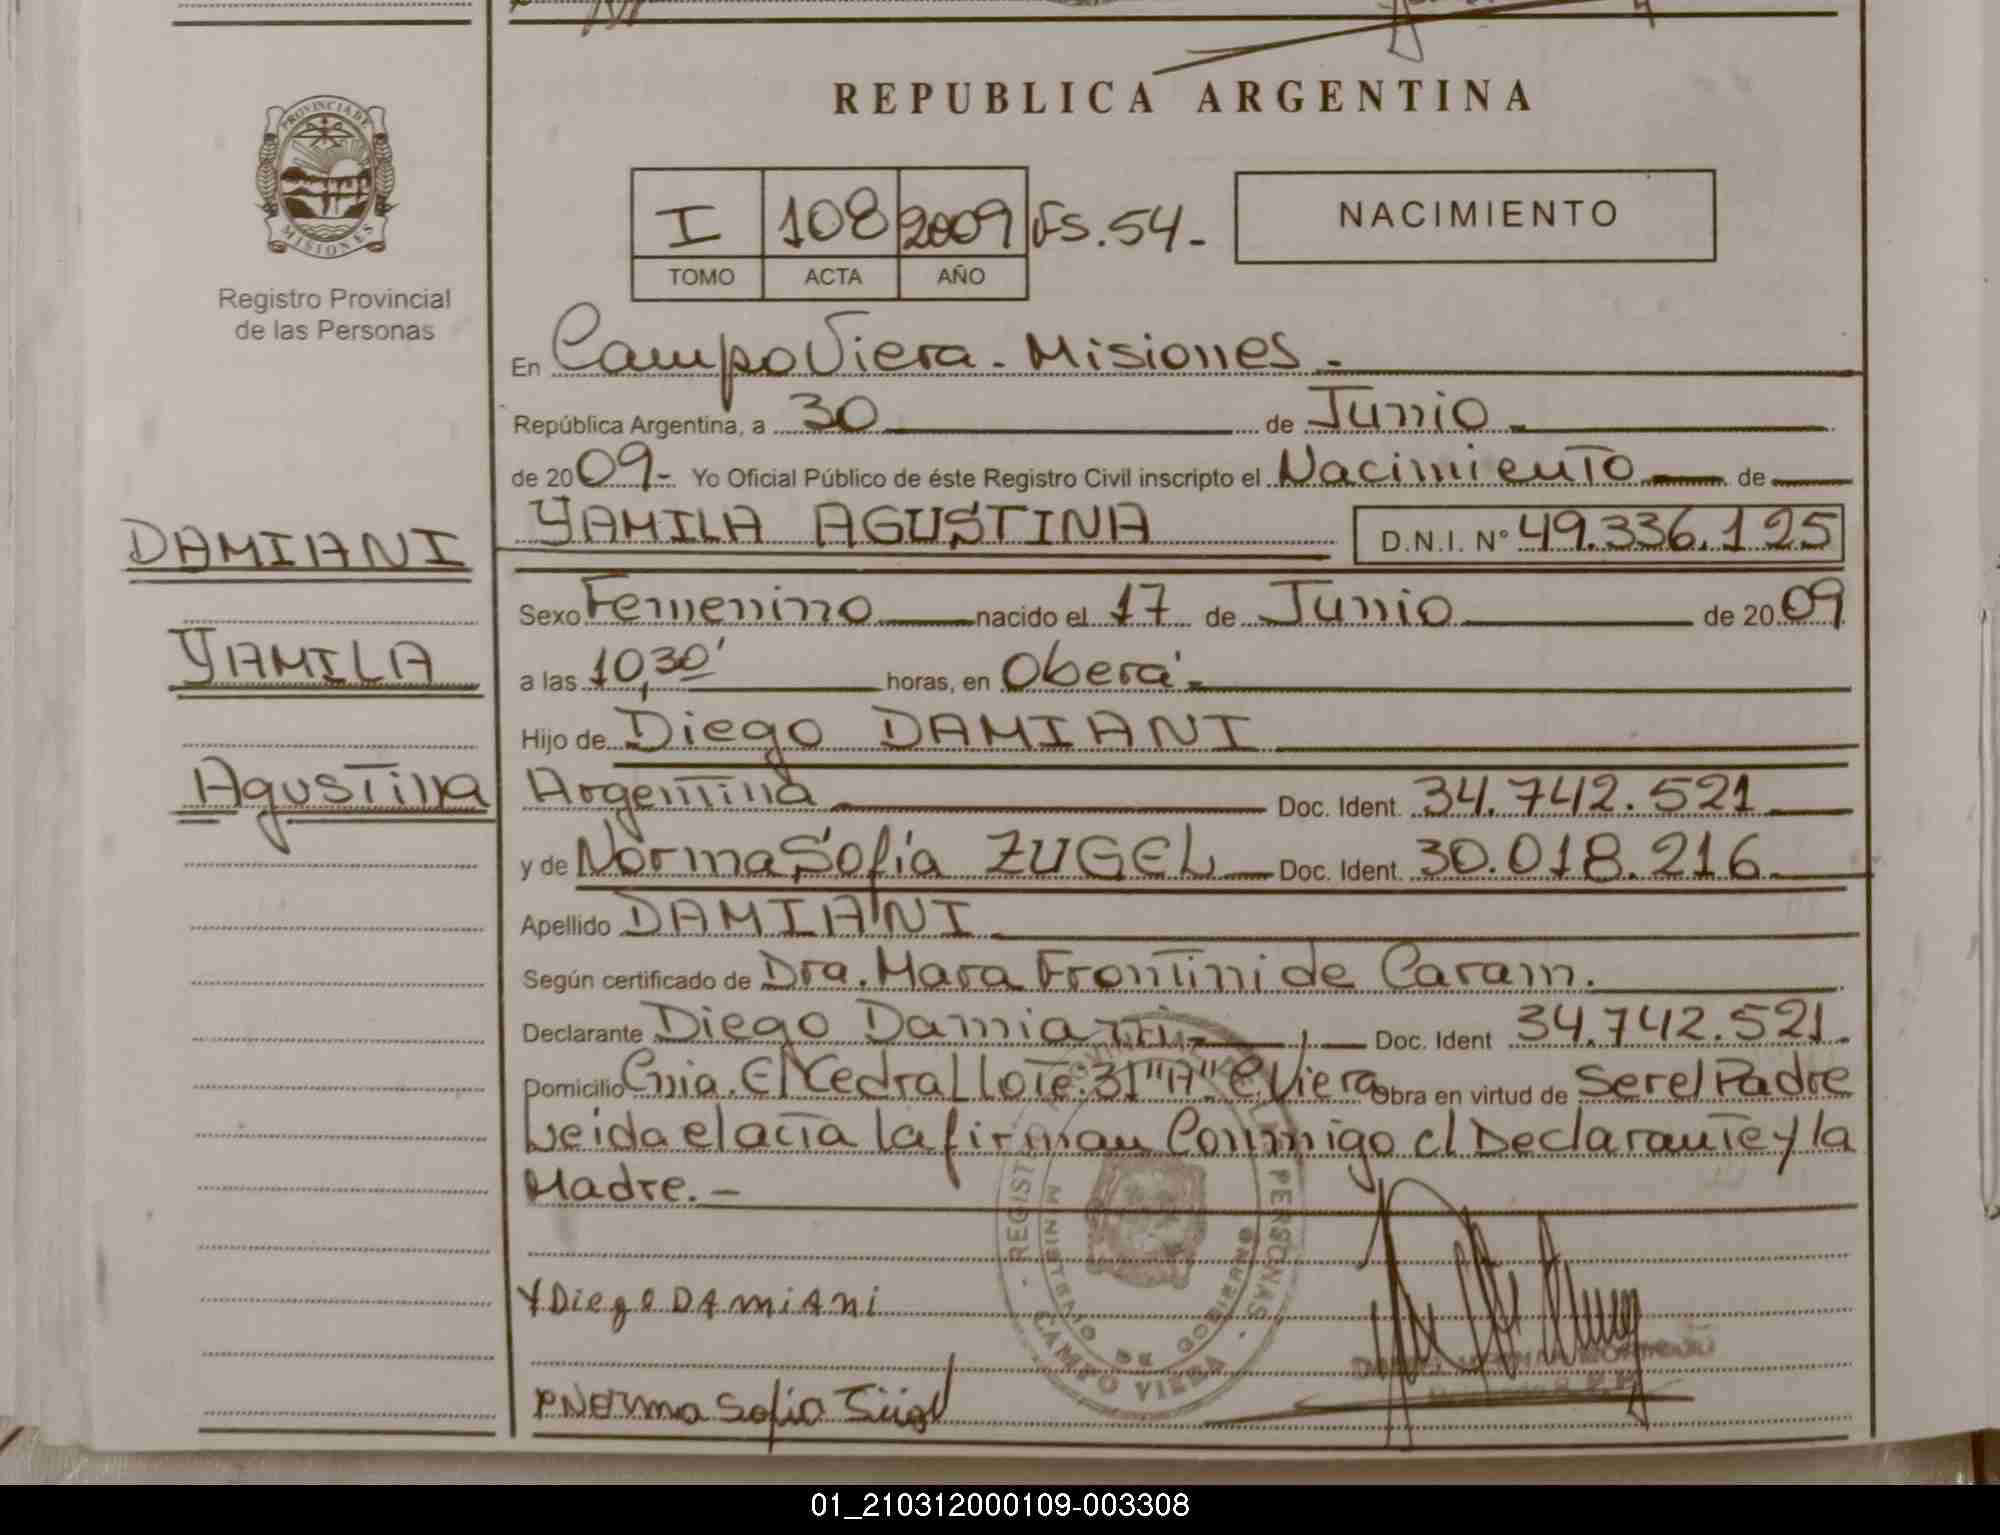 REPUBLICA ARGENTINA
PROVINCIA DE
MISIONES
Registro Provincial
de las Personas
I 108 2009 Fs. 54.-
TOMO ACTA AÑO
NACIMIENTO
En Campo Viera. Misiones.-
República Argentina, a 30 de Junio.
de 2009.- Yo Oficial Público de éste Registro Civil inscripto el Nacimiento de
YAMILA AGUSTINA D.N.I. N° 49.336.125
DAMIANI
YAMILA
Agustina
Sexo Femenino nacido el 17 de Junio de 2009
a las 10,30' horas, en Oberá.-
Hijo de Diego DAMIANI
Argentina Doc. Ident. 34.742.521
y de Norma Sofía ZUGEL Doc. Ident. 30.018.216
Apellido DAMIANI
Según certificado de Dra. Mara Frontini de Caram.
Declarante Diego Damiani Doc. Ident 34.742.521.
Domicilio Cnia. El Cedral Lote: 31 "A" C. Viera Obra en virtud de Ser el Padre
Leida el acta la firman Conmigo el Declarante y la
Madre.-
REGISTRO PROVINCIAL DE LAS PERSONAS
MINISTERIO DE GOBIERNO
CAMPO VIERA
Diego DAmiAni
Norma Sofia
01_210312000109-003308